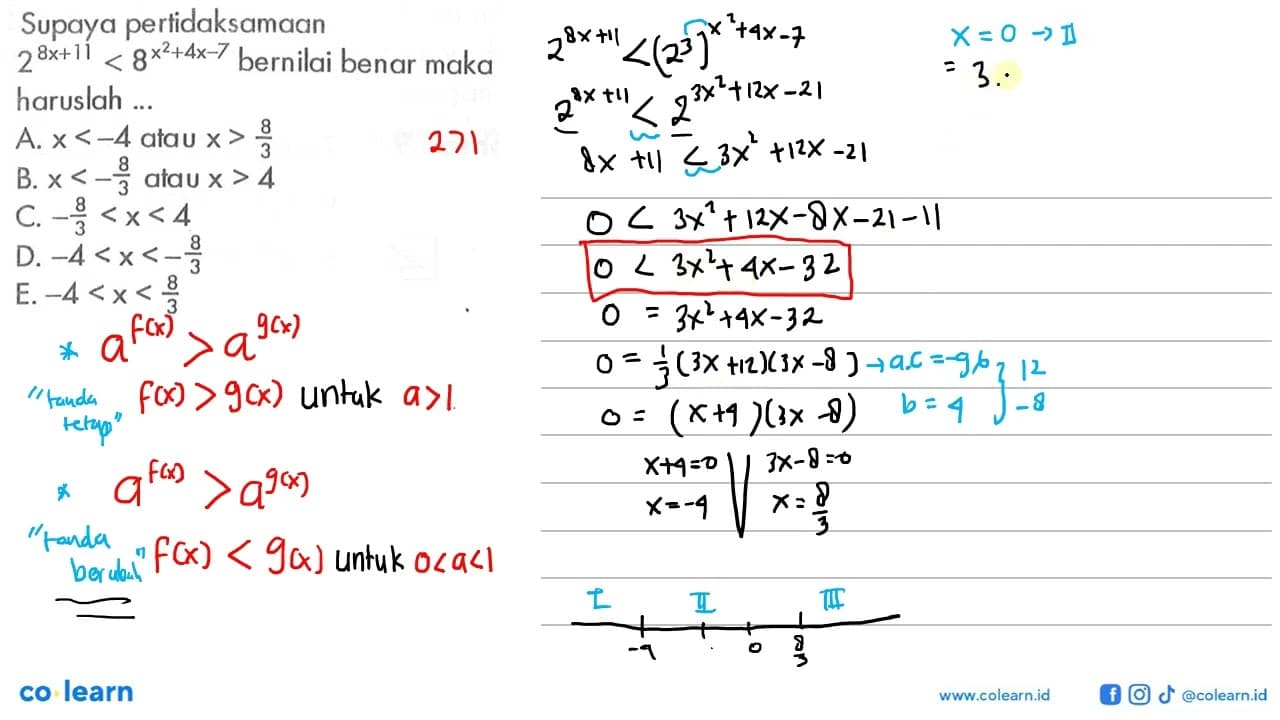 Supaya pertidaksamaan
2^{8x+11} < 8^{x²+4x–7} bernilai benar maka
haruslah ...
A. x < –4 atau x > 8/3
B. x < –8/3 atau x > 4
C. –8/3 < x < 4
D. –4 < x < –8/3
E. –4 < x < 8/3
2>1
* a^{f(x)} > a^{g(x)}
"tanda tetap" f(x) > g(x) untuk a>1.
* a^{f(x)} > a^{g(x)}
"tanda berubah" f(x) < g(x) untuk 0<a<1
2^{8x+11} < (2^3)^{x²+4x-7}
2^{8x+11} < 2^{3x²+12x-21}
8x +11 < 3x² +12x -21
0 < 3x²+12x-8x-21-11
0 < 3x²+4x-32
0 = 3x²+4x-32
0 = 1/3 (3x+12)(3x-8) → a.c = -96 } 12
0 = (x+4)(3x-8) b = 4 } -8
x+4=0 V 3x-8=0
x=-4 x = 8/3
I II III
-4 0 8/3
x = 0 → II
= 3.
co·learn
www.colearn.id
@colearn.id